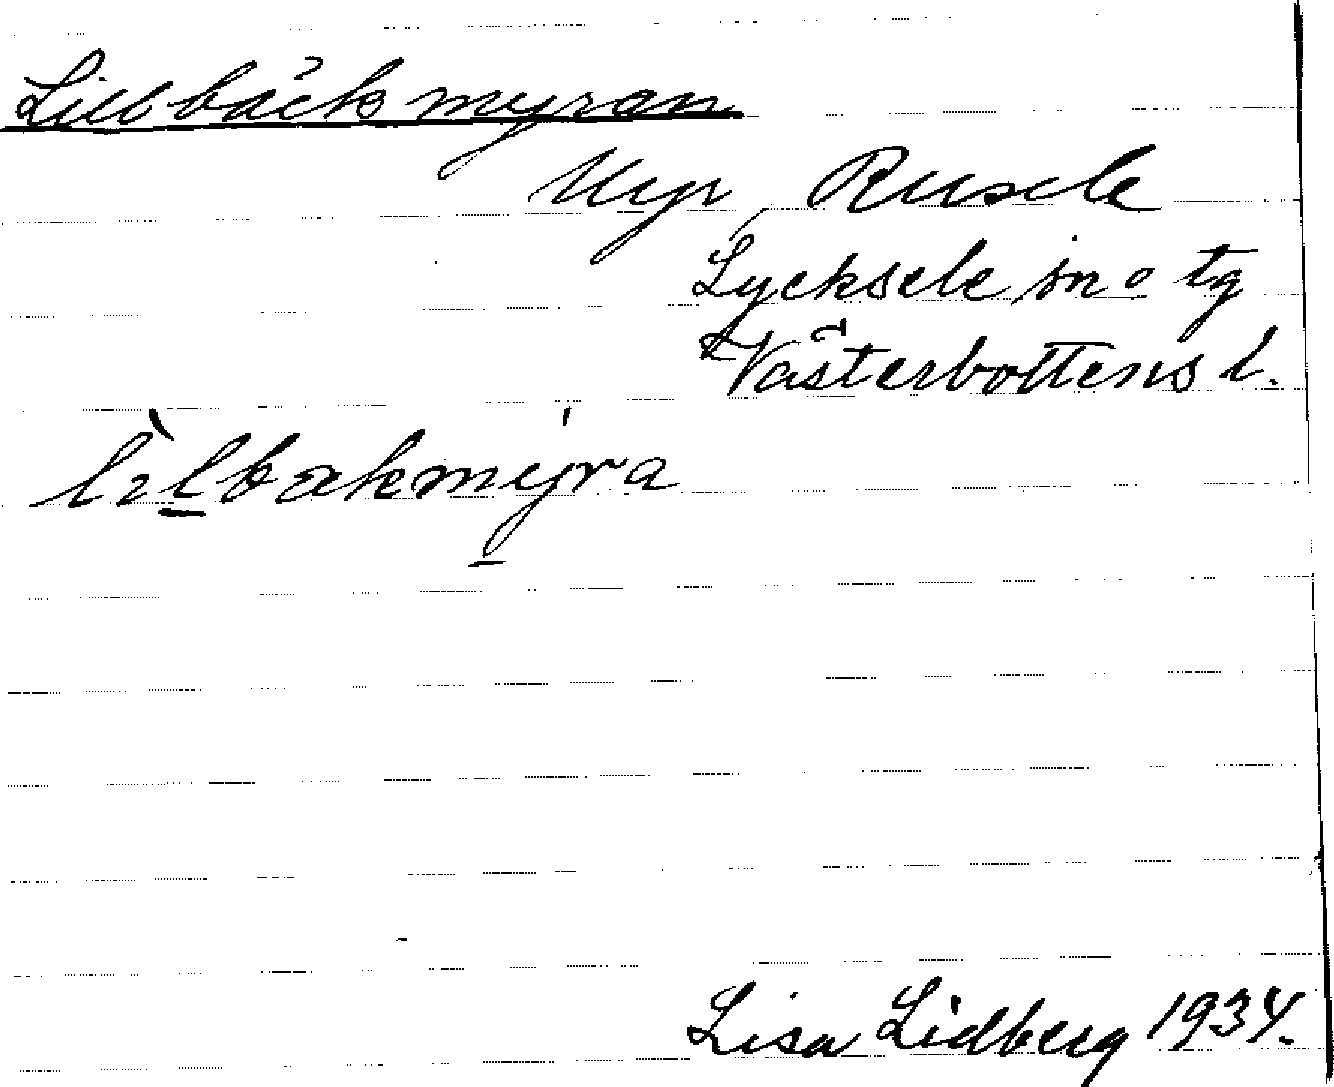 Lillbäckmyran
Myr, Rusele
Lycksele sn o tg
Västerbottens l.
lìlbækmýra
Lisa Lidberg 1934.